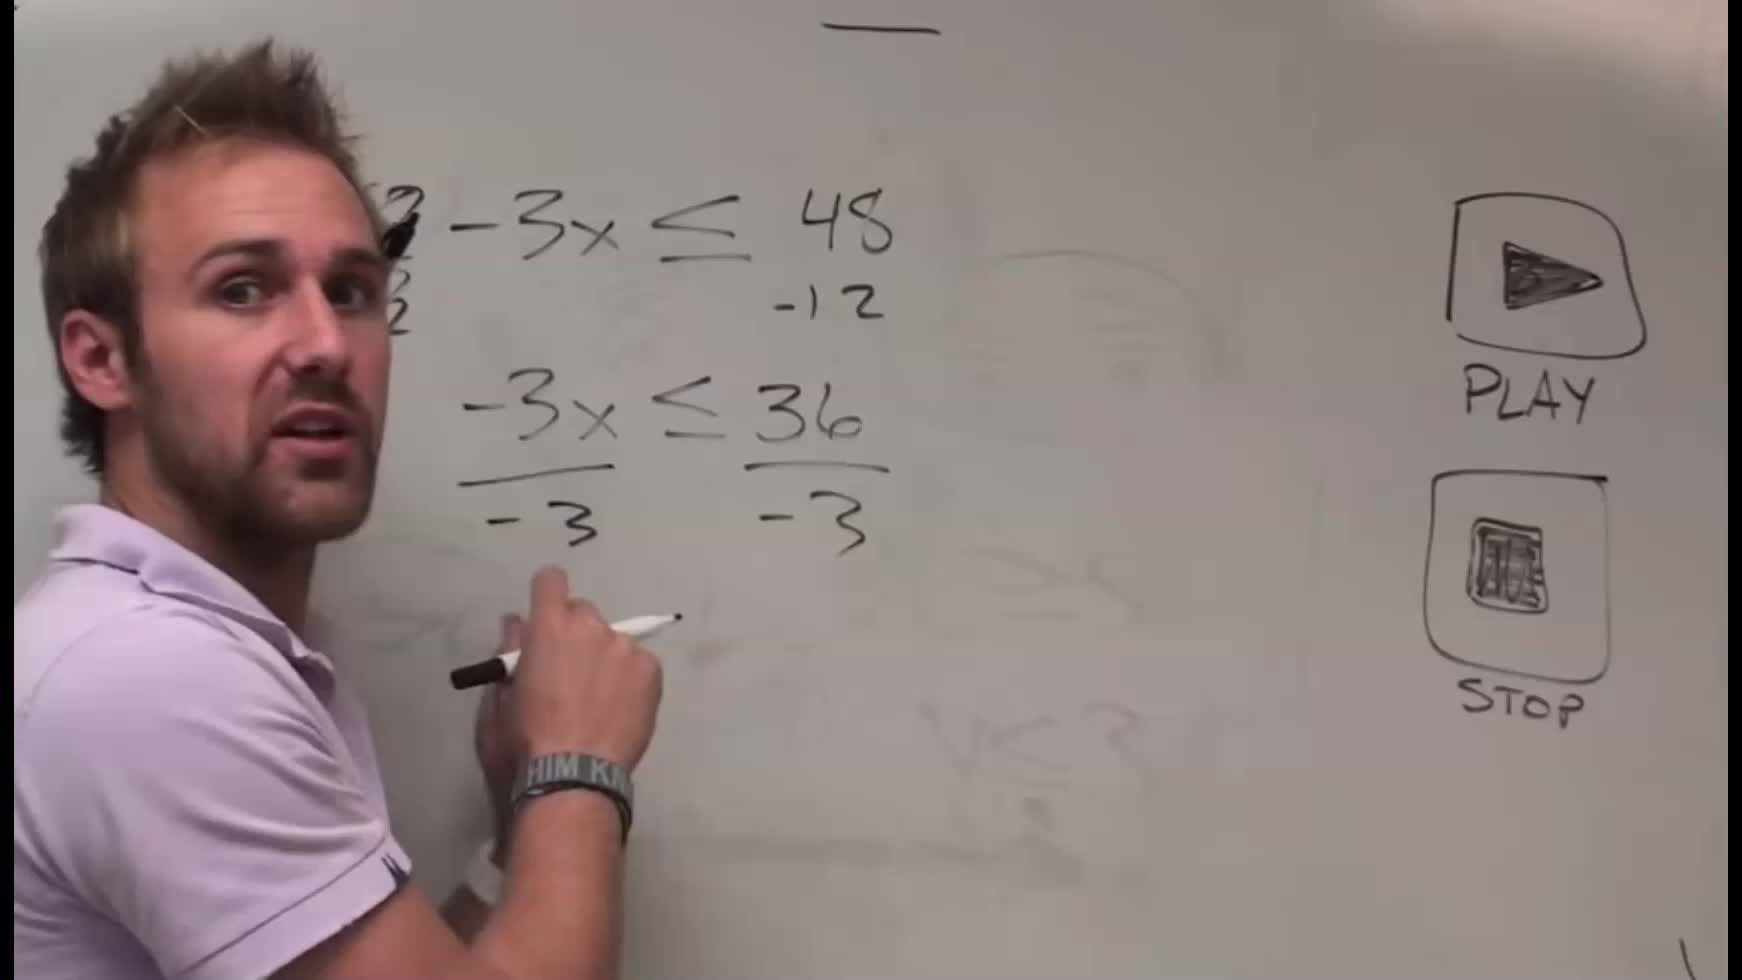 2 - 3x ≤ 48
2 -12
-3x ≤ 36
-3 -3
PLAY
STOP
HIM KN